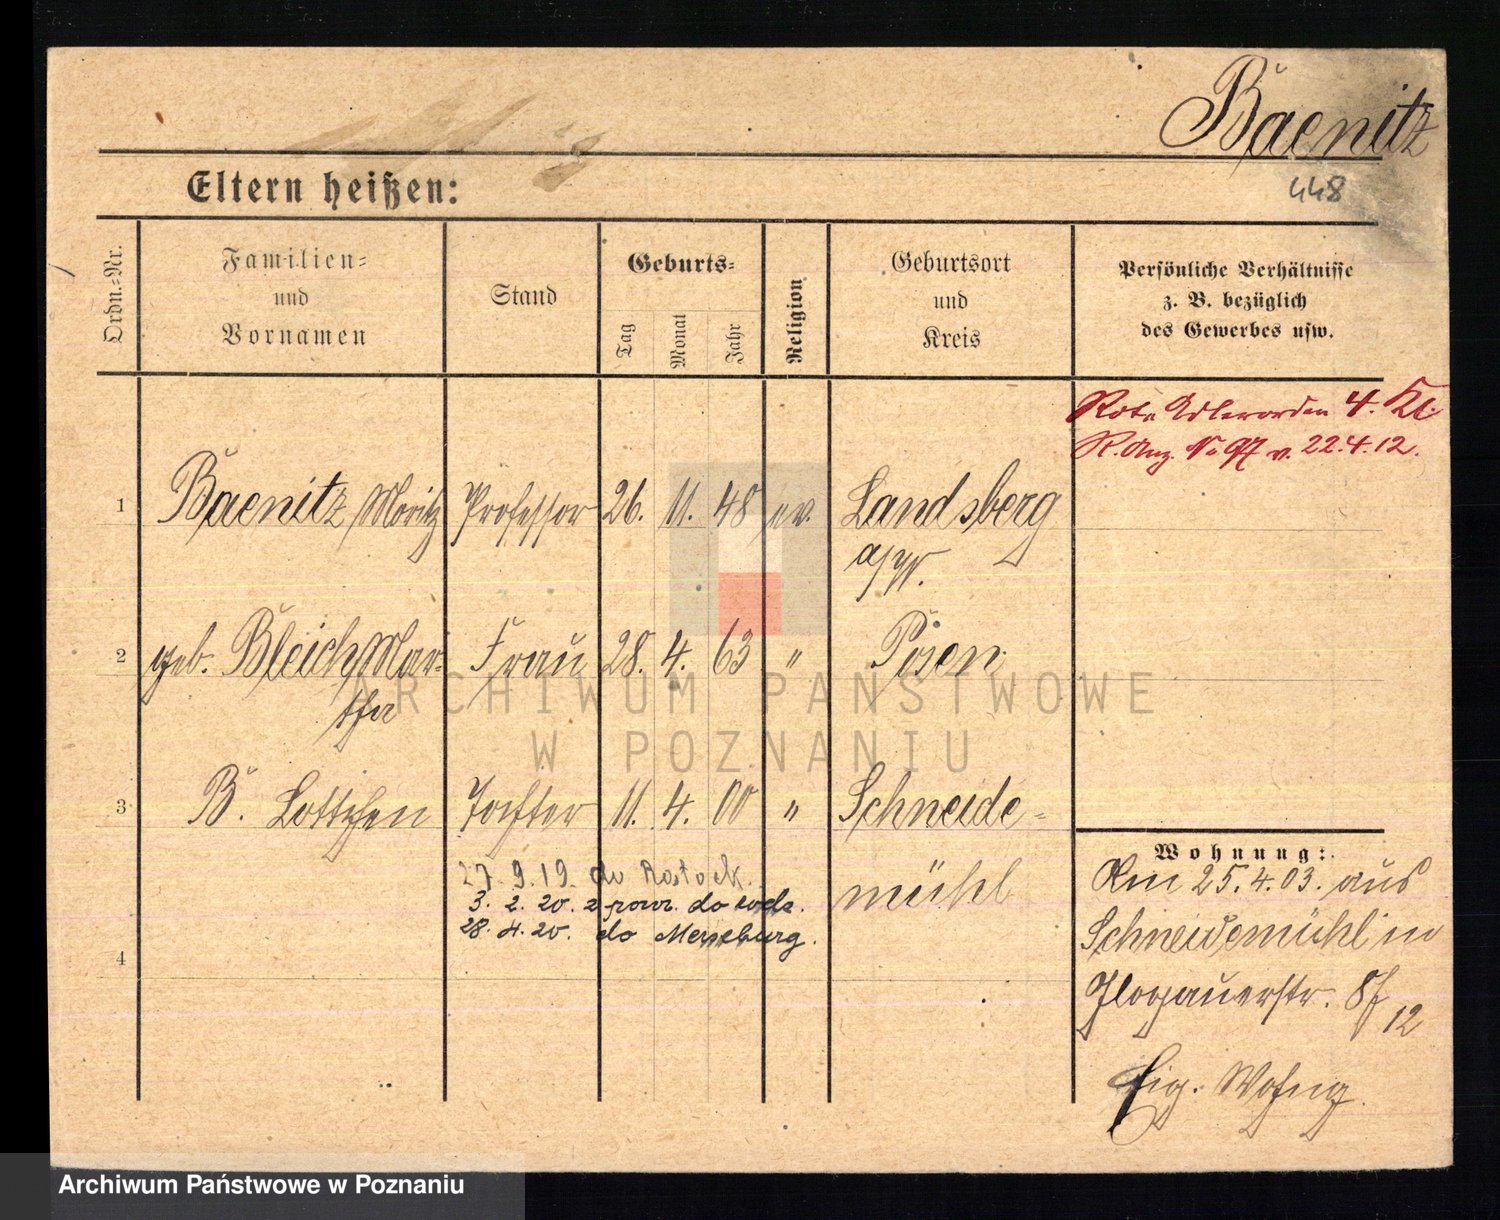 Baenitz
448
Eltern heißen:
Ordn.-Nr.
Familien-
und
Vornamen
Stand
Geburts-
Tag
Monat
Jahr
Religion
Geburtsort
und
Kreis
Persönliche Verhältnisse
z. B. bezüglich
des Gewerbes usw.
Rote Adlerorden 4. Kl.
R. Anz. No 97 v. 22.4.12.
1 Baenitz Moritz Professor 26. 11. 48 ev. Landsberg
a/W.
2 geb. Bleich Mar- Frau 28. 4. 63 " Posen
tha
3 B. Lottchen Tochter 11. 4. 00 " Schneide-
mühl
27. 9. 19. do Rostock.
3. 2. 20. z pow. do
28. 4. 20. do Merseburg.
4
Wohnung:
Am 25.4.03. aus
Schneidemühl in
Glogauerstr. 87
12
Eig. Wohng.
ARCHIWUM PAŃSTWOWE
W POZNANIU
Archiwum Państwowe w Poznaniu